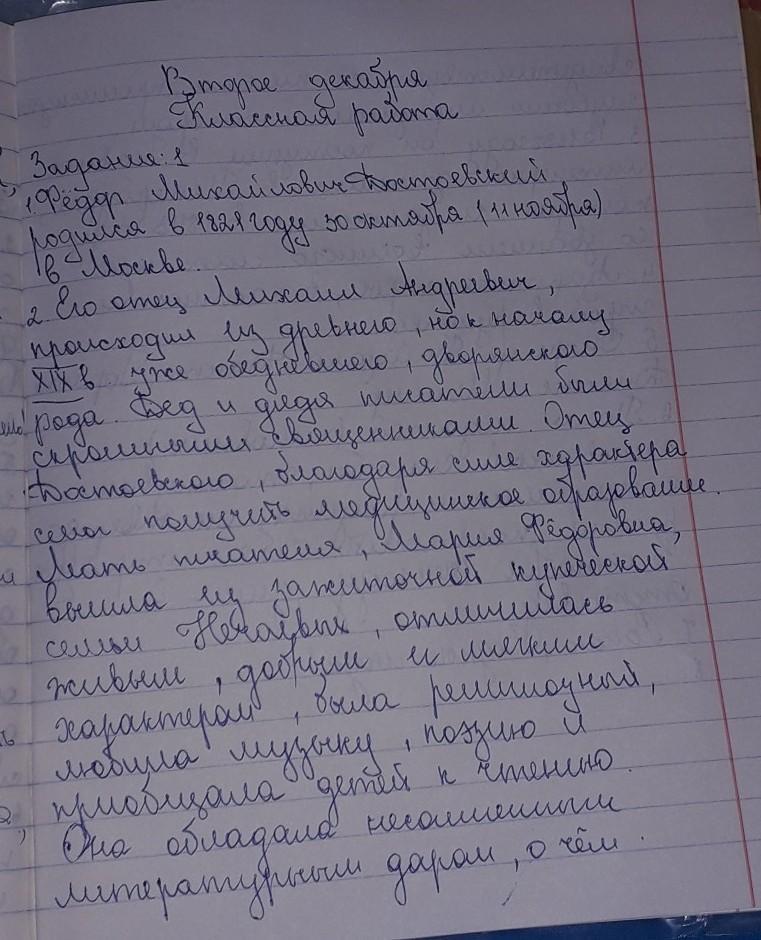 Второе декабря
Классная работа
Задание: 1
1. Фёдор Михайлович Достоевский
родился в 1821 году 30 октября (11 ноября)
в Москве.
2. Его отец Михаил Андреевич,
происходил из древнего, но к началу
XIX в. уже обедневшего, дворянского
рода. Дед и дядя писателя были
скромными священниками. Отец
Достоевского, благодаря силе характера
смог получить медицинское образование.
Мать писателя, Мария Фёдоровна,
вышла из зажиточной купеческой
семьи Нечаевых, отличилась
живым, добрым и мягким
характером, была религиозный,
любила музыку, поэзию и
приобщала детей к чтению.
Она обладала несомненным
литературным даром, о чём.